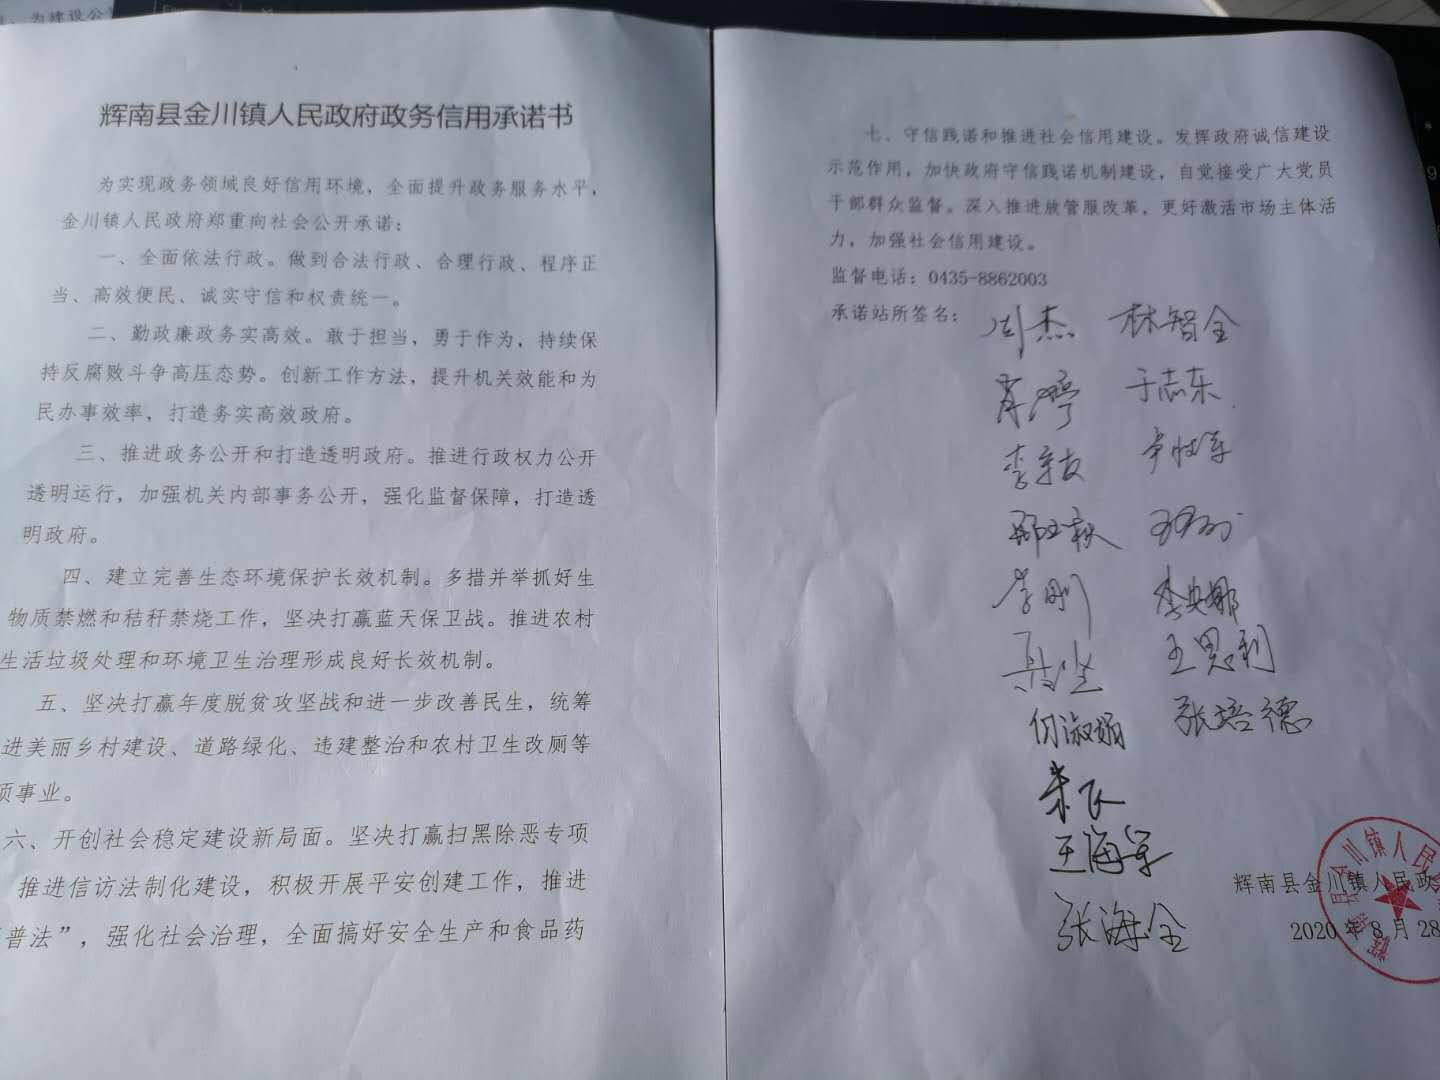 辉南县金川镇人民政府政务信用承诺书
为实现政务领域良好信用环境，全面提升政务服务水平，
金川镇人民政府郑重向社会公开承诺：
一、全面依法行政。做到合法行政、合理行政、程序正
当、高效便民、诚实守信和权责统一。
二、勤政廉政务实高效。敢于担当，勇于作为，持续保
持反腐败斗争高压态势。创新工作方法，提升机关效能和为
民办事效率，打造务实高效政府。
三、推进政务公开和打造透明政府。推进行政权力公开
透明运行，加强机关内部事务公开，强化监督保障，打造透
明政府。
四、建立完善生态环境保护长效机制。多措并举抓好生
物质禁燃和秸秆禁烧工作，坚决打赢蓝天保卫战。推进农村
生活垃圾处理和环境卫生治理形成良好长效机制。
五、坚决打赢年度脱贫攻坚战和进一步改善民生，统筹
进美丽乡村建设、道路绿化、违建整治和农村卫生改厕等
项事业。
六、开创社会稳定建设新局面。坚决打赢扫黑除恶专项
推进信访法制化建设，积极开展平安创建工作，推进
普法”，强化社会治理，全面搞好安全生产和食品药
七、守信践诺和推进社会信用建设。发挥政府诚信建设
示范作用，加快政府守信践诺机制建设，自觉接受广大党员
干部群众监督。深入推进放管服改革，更好激活市场主体活
力，加强社会信用建设。
监督电话：0435-8862003
承诺站所签名：
周杰 林智全
于志东
李刚
王思利
何淑娟 张培德
王海军
张海全
辉南县金川镇人民政
2020年8月28
辉南县金川镇人民